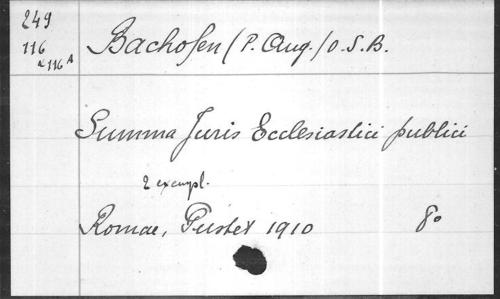 249
116
a 116 A
Bachofen (P. Aug.) O.S.B.
Summa Juris Ecclesiastici publici
2 exempl.
Romae, Pustet 1910 8°